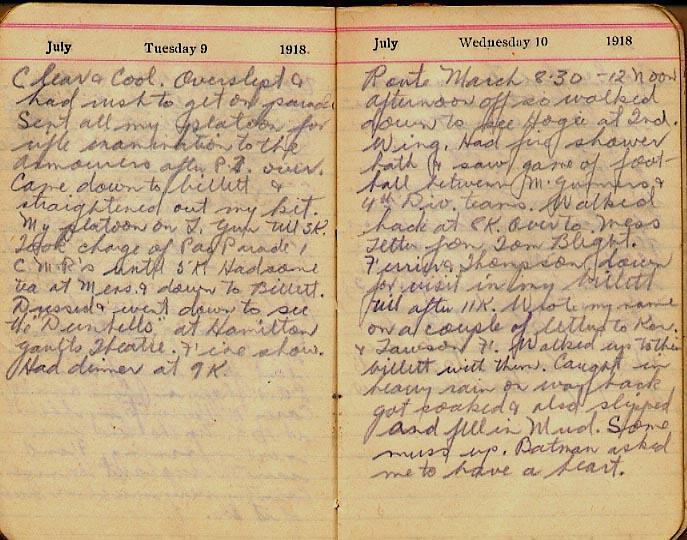 July Tuesday 9 1918.
Clear & Cool. Overslept &
had rush to get on parade
Sent all my platoon for
rifle examination to the
armourers after P.T. over.
Came down to billett &
straightened out my kit.
My platoon on L. Gun till 3K.
Took charge of Pay Parade
until 5K Had some
tea at Mess. & down to Billett.
Dressed & went down to see
the "Dumbells" at Hamilton
Theatre. Fine show.
Had dinner at 9K.
July Wednesday 10 1918
Route March 8.30 - 12 Noon
afternoon off so walked
down to see Hogg at 2nd.
Wing. Had fine shower
bath & saw game of foot-
ball between M. Gunners &
4th Div. teams. Walked
back at 8K. Over to Mess
Letter from Tom Blight.
& Thompson down
for visit in my billett
till after 11K. Wrote my name
on a couple of letters to Ken.
& Lawson F. Walked up to their
billett with them. Caught in
heavy rain on way back
got soaked & also slipped
and fell in Mud. Some
muss up. Batman asked
me to have a heart.